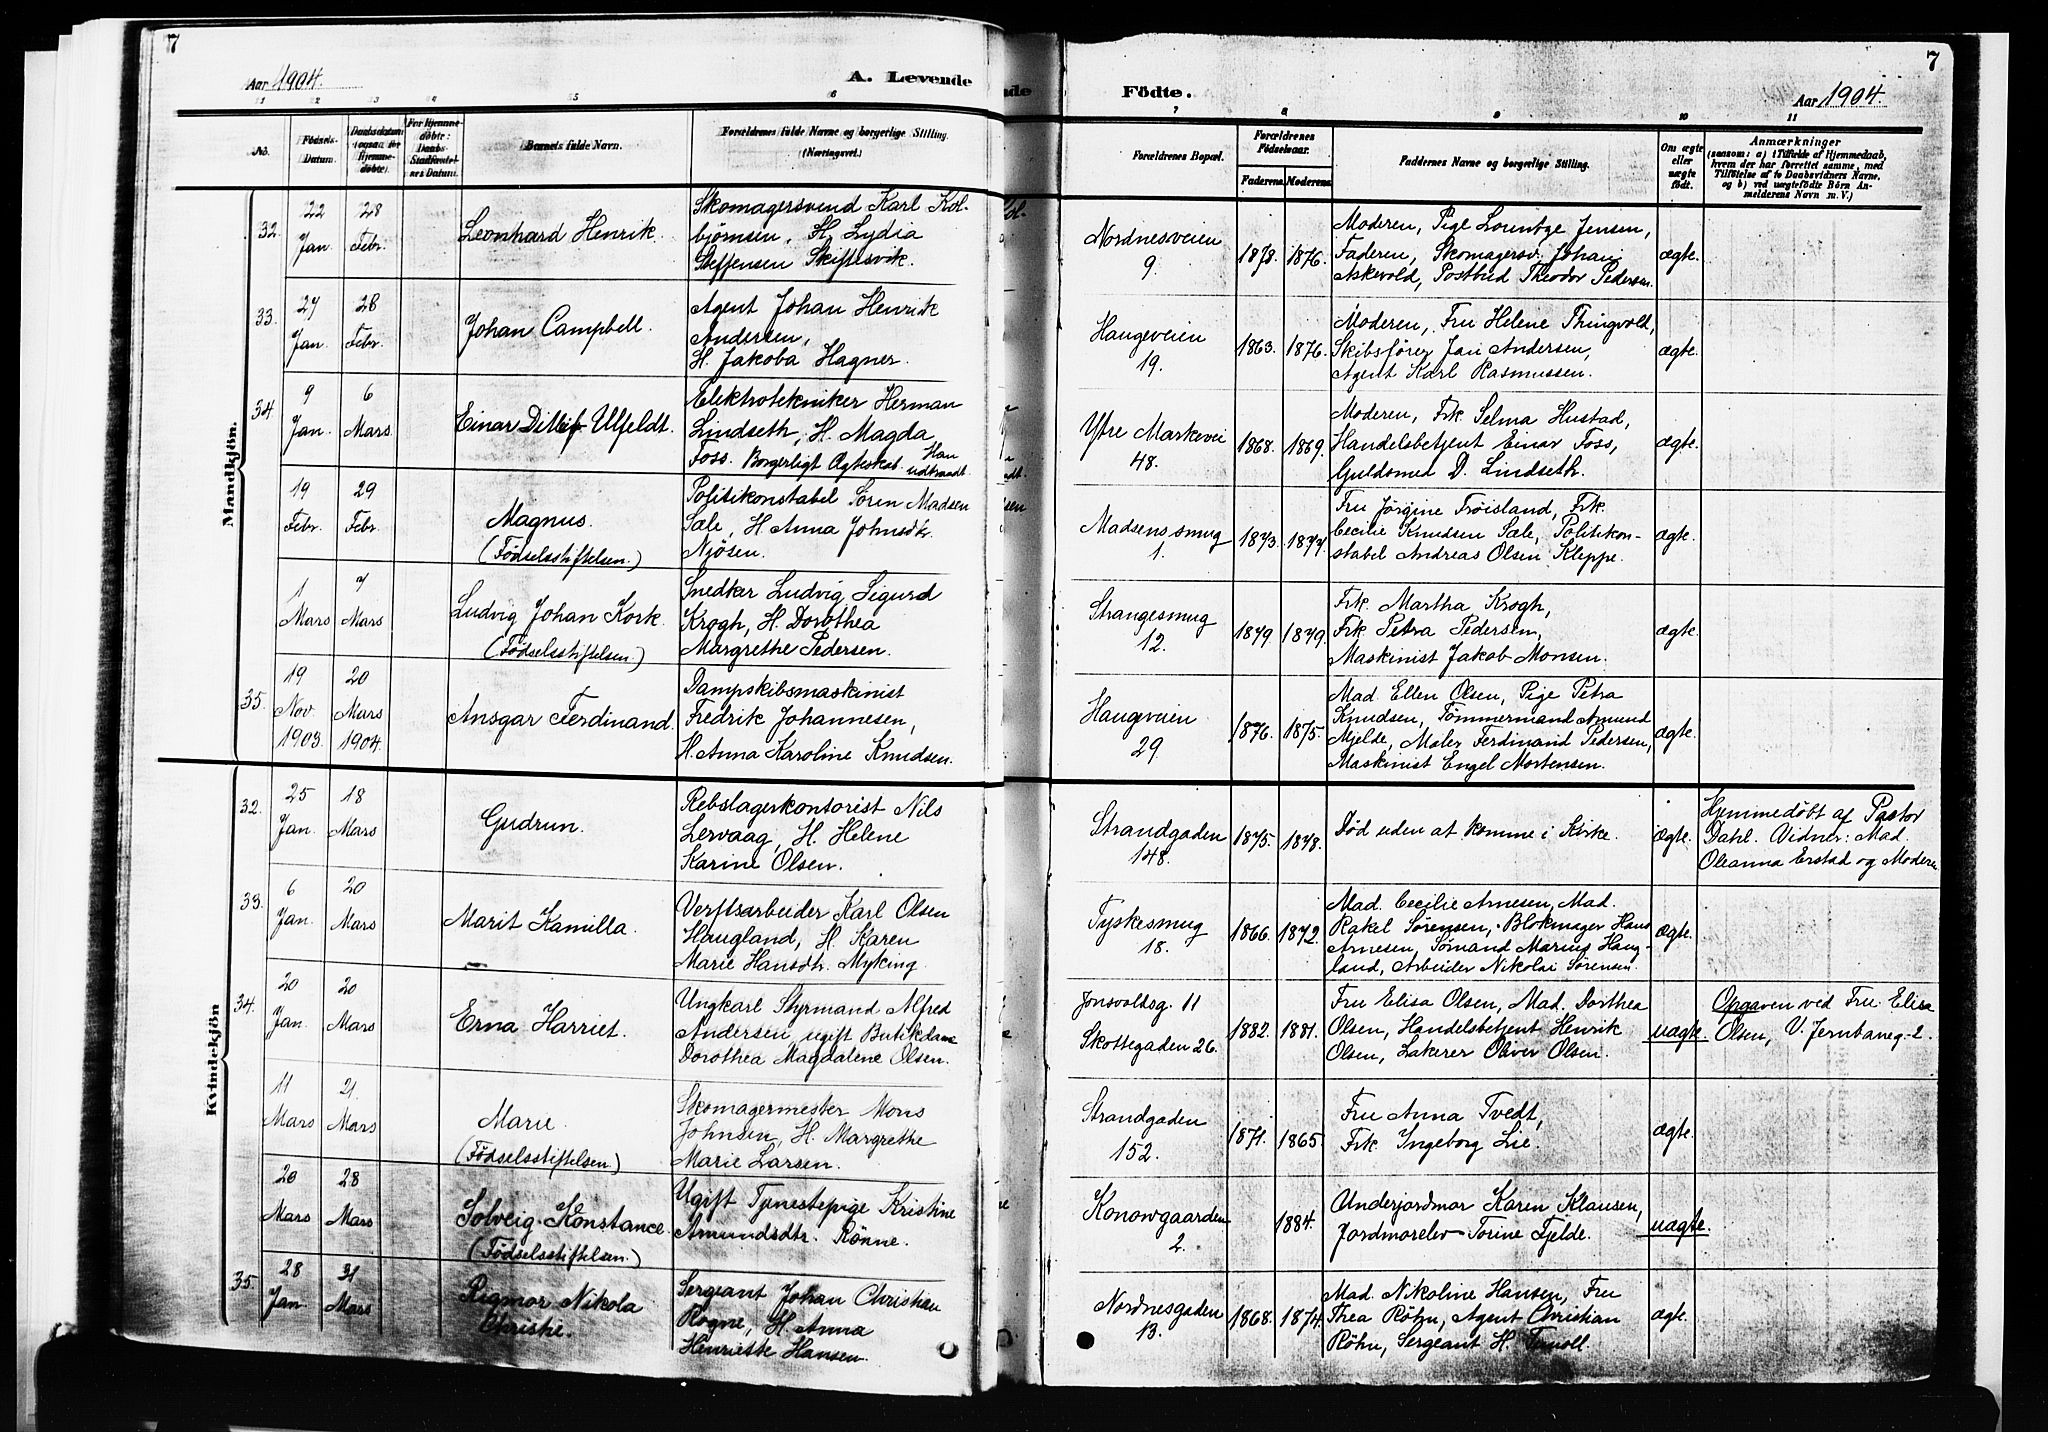 7
Aar 1904.
A. Levende
1 2 3 4 5 6
No.
Födsels-
Datum.
Daabsdatum
(ogsaa for
Hjemme-
döbte).
For Hjemme-
döbte:
Daabs-
Stadfæstel-
ses Datum.
Barnets fulde Navn.
Forældrenes fulde Navne og borgerlige Stilling.
(Næringsvei.)
Mandkjön.
32.
22
Jan.
28
Febr.
Leonhard Henrik.
Skomagersvend Karl Kol-
bjørnsen, H. Lydia
Steffensen Skiftesvik.
33.
27
Jan.
28
Febr.
Johan Campbell.
Agent Johan Henrik
Andersen,
H. Jakoba Hagner.
34
9
Jan.
6
Mars.
Einar Ditlif Ulfeldt.
Elektrotekniker Herman
Lindseth, H. Magda
Foss. Borgerligt Ægteskab. Han
udtraadt.
19
Febr.
29
Febr.
Magnus.
(Födselsstiftelsen.)
Politikonstabel Sören Madsen
Sæle, H. Anna Johnsdtr.
Njøsen.
1
Mars
7
Mars
Ludvig Johan Kork.
(Födselsstiftelsen.)
Snedker Ludvig Sigurd
Krogh, H. Dorothea
Margrethe Pedersen.
35.
19
Nov.
1903.
20
Mars
1904.
Ansgar Ferdinand.
Dampskibsmaskinist
Fredrik Johannesen,
H. Anna Karoline Knudsen.
Kvindekjön
32.
25
Jan.
18
Mars
Gudrun.
Rebslagerkontorist Nils
Lervaag, H. Helene
Karine Olsen.
33.
6
Jan.
20
Mars
Marit Kamilla.
Verftsarbeider Karl Olsen
Haugland, H. Karen
Marie Hansdtr. Myking.
34.
20
Jan.
20
Mars
Erna Harriet.
Ungkarl Styrmand Alfred
Andersen, ugift Butikdame
Dorothea Magdalene Olsen.
11
Mars
21
Mars
Marie.
(Födselsstiftelsen.)
Skomagermester Mons
Johnsen, H. Margrethe
Marie Larsen.
20
Mars
28
Mars
Solveig Konstance.
(Födselsstiftelsen.)
Ugift Tjenestepige Kristine
Amundsdtr. Rönne.
35.
28
Jan.
31
Mars
Rigmor Nikola
Christie.
Sergeant Johan Christian
Rogne, H. Anna
Henriette Hansen.
7
Födte.
Aar 1904.
7 8 9 10 11
Forældrenes Bopæl.
Forældrenes
Födselsaar.
Faderens. Moderens.
Faddernes Navne og borgerlige Stilling.
Om ægte
eller
uægte
födt.
Anmærkninger
(saasom: a) i Tilfælde af Hjemmedaab,
hvem der har forrettet samme, med
Tilföielse af to Daabsvidners Navne,
og b) ved uægtefödte Börn An-
melderens Navn m. V.)
Nordnesveien
9.
1878. 1876.
Moderen, Pige Jensen,
Faderen, Skomagersv. Johan
Askevold, Postbud Theodor Pedersen.
ægte.
Haugeveien
19.
1863. 1876.
Moderen, Fru Helene Thingvold,
Skibsfører Jan Andersen,
Agent Karl Rasmussen.
ægte.
Ytre Markevei
48.
1868. 1869.
Moderen, Frk. Selma Hustad,
Handelsbetjent Einar Foss,
Guldsmed D. Lindseth.
ægte.
Madsens smug
1.
1873. 1877.
Fru Jørgine Trøisland, Frk.
Cecilie Knudsen Sæle, Politikon-
stabel Andreas Olsen Kleppe.
ægte.
Strangesmug
12.
1879. 1879.
Frk. Martha Krogh,
Frk. Petra Pedersen,
Maskinist Jakob Monsen.
ægte.
Haugeveien
29.
1876. 1875.
Mad. Ellen Olsen, Pige Petra
Knudsen, Tømmermand Amund
Mjelde, Maler Ferdinand Pedersen,
Maskinist Engel Mortensen.
ægte.
Strandgaden
148.
1875. 1878.
Död uden at komme i Kirke.
ægte.
Hjemmedøbt af Pastor
Dahl. Vidner: Mad.
Oleanna Erstad og Moderen
Tyskesmug
18.
1866. 1872.
Mad. Cecilie Arnesen, Mad.
Rakel Sørensen, Blokmager Hans
Arnesen, Sømand Marius Haug-
land, Arbeider Nikolai Sørensen.
ægte.
Jonsvoldsg. 11
Skottegaden 26.
1882. 1881.
Fru Elisa Olsen, Mad. Dorthea
Olsen, Handelsbetjent Henrik
Olsen, Lakerer Oliver Olsen.
uægte.
Opgaven ved Fru Elisa
Olsen, V. Jernbaneg. 2.
Strandgaden
152.
1871. 1865.
Fru Anna Tvedt,
Frk. Ingeborg Lie.
ægte.
Konowgaarden
2.
1884.
Underjordmor Karen Klausen,
Jordmorelev Torine Fjelde.
uægte.
Nordnesgaden
13.
1868. 1874.
Mad. Nikoline Hansen, Fru
Thea Röhn, Agent Christian
Röhn, Sergeant H.
ægte.